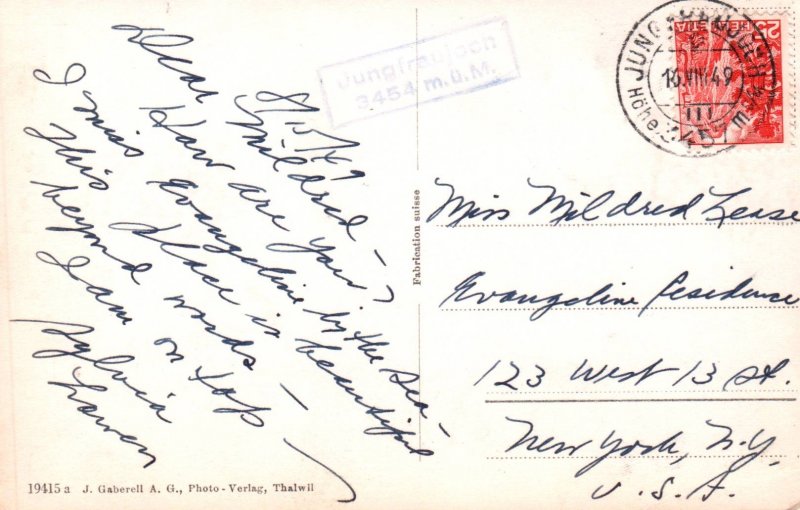 Jungfraujoch
3454 m.ü.M.
8/15/49
Dear Mildred –
How are you?
I miss Evangeline by the sea –
This place is beautiful
beyond words –
I am on top –
Sylvia
JUNGFRAUJOCH
16.VIII.49
Höhe 3457 m
25
HELVETIA
Miss Mildred Lease
Evangeline Residence
123 West 13 St.
New York, N.Y.
U.S.A.
Fabrication suisse
19415 a J. Gaberell A. G., Photo-Verlag, Thalwil